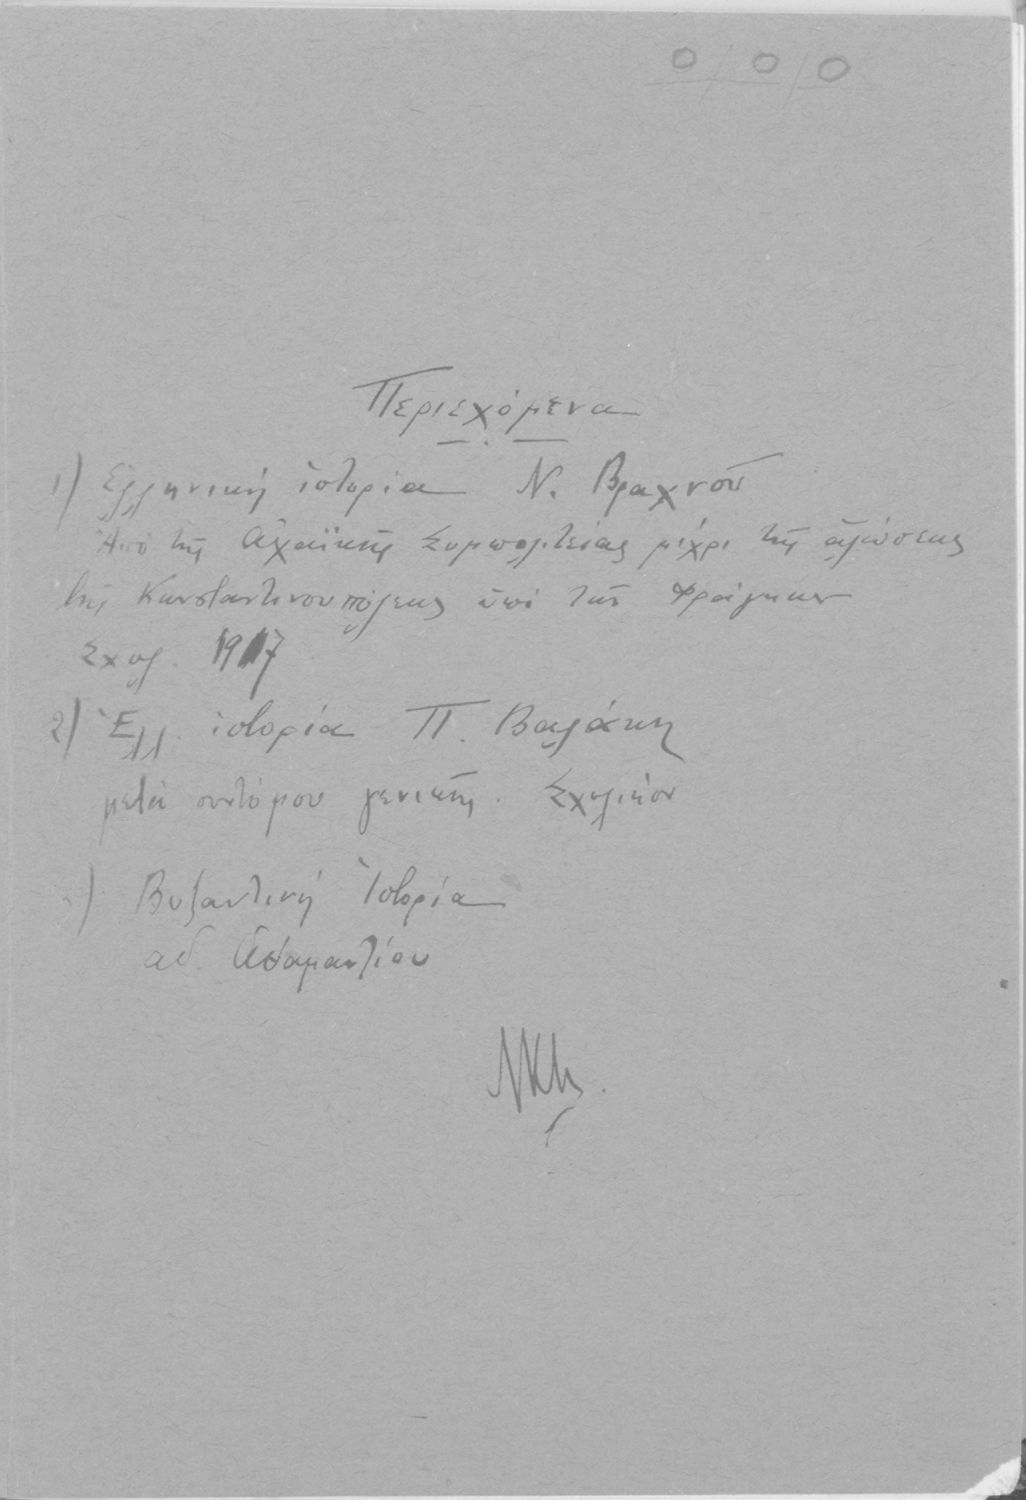 0/0/0
Περιεχόμενα
1) Ἑλληνική ἱστορία Ν. Βραχνοῦ
Ἀπό τῆς Ἀχαϊκῆς Συμπολιτείας μέχρι τῆς ἁλώσεως
τῆς Κωνσταντινουπόλεως ὑπό τῶν Φράγκων
Σχολ. 1917
2) Ἑλλ. ἱστορία Π. Βαλάκη
μετά συντόμου γενικῆς. Σχολικόν
) Βυζαντινή Ἱστορία
αδ. Αδαμαντίου